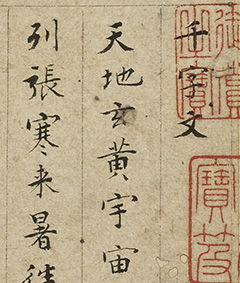 千字文
天地玄黄宇宙
列張寒来暑往